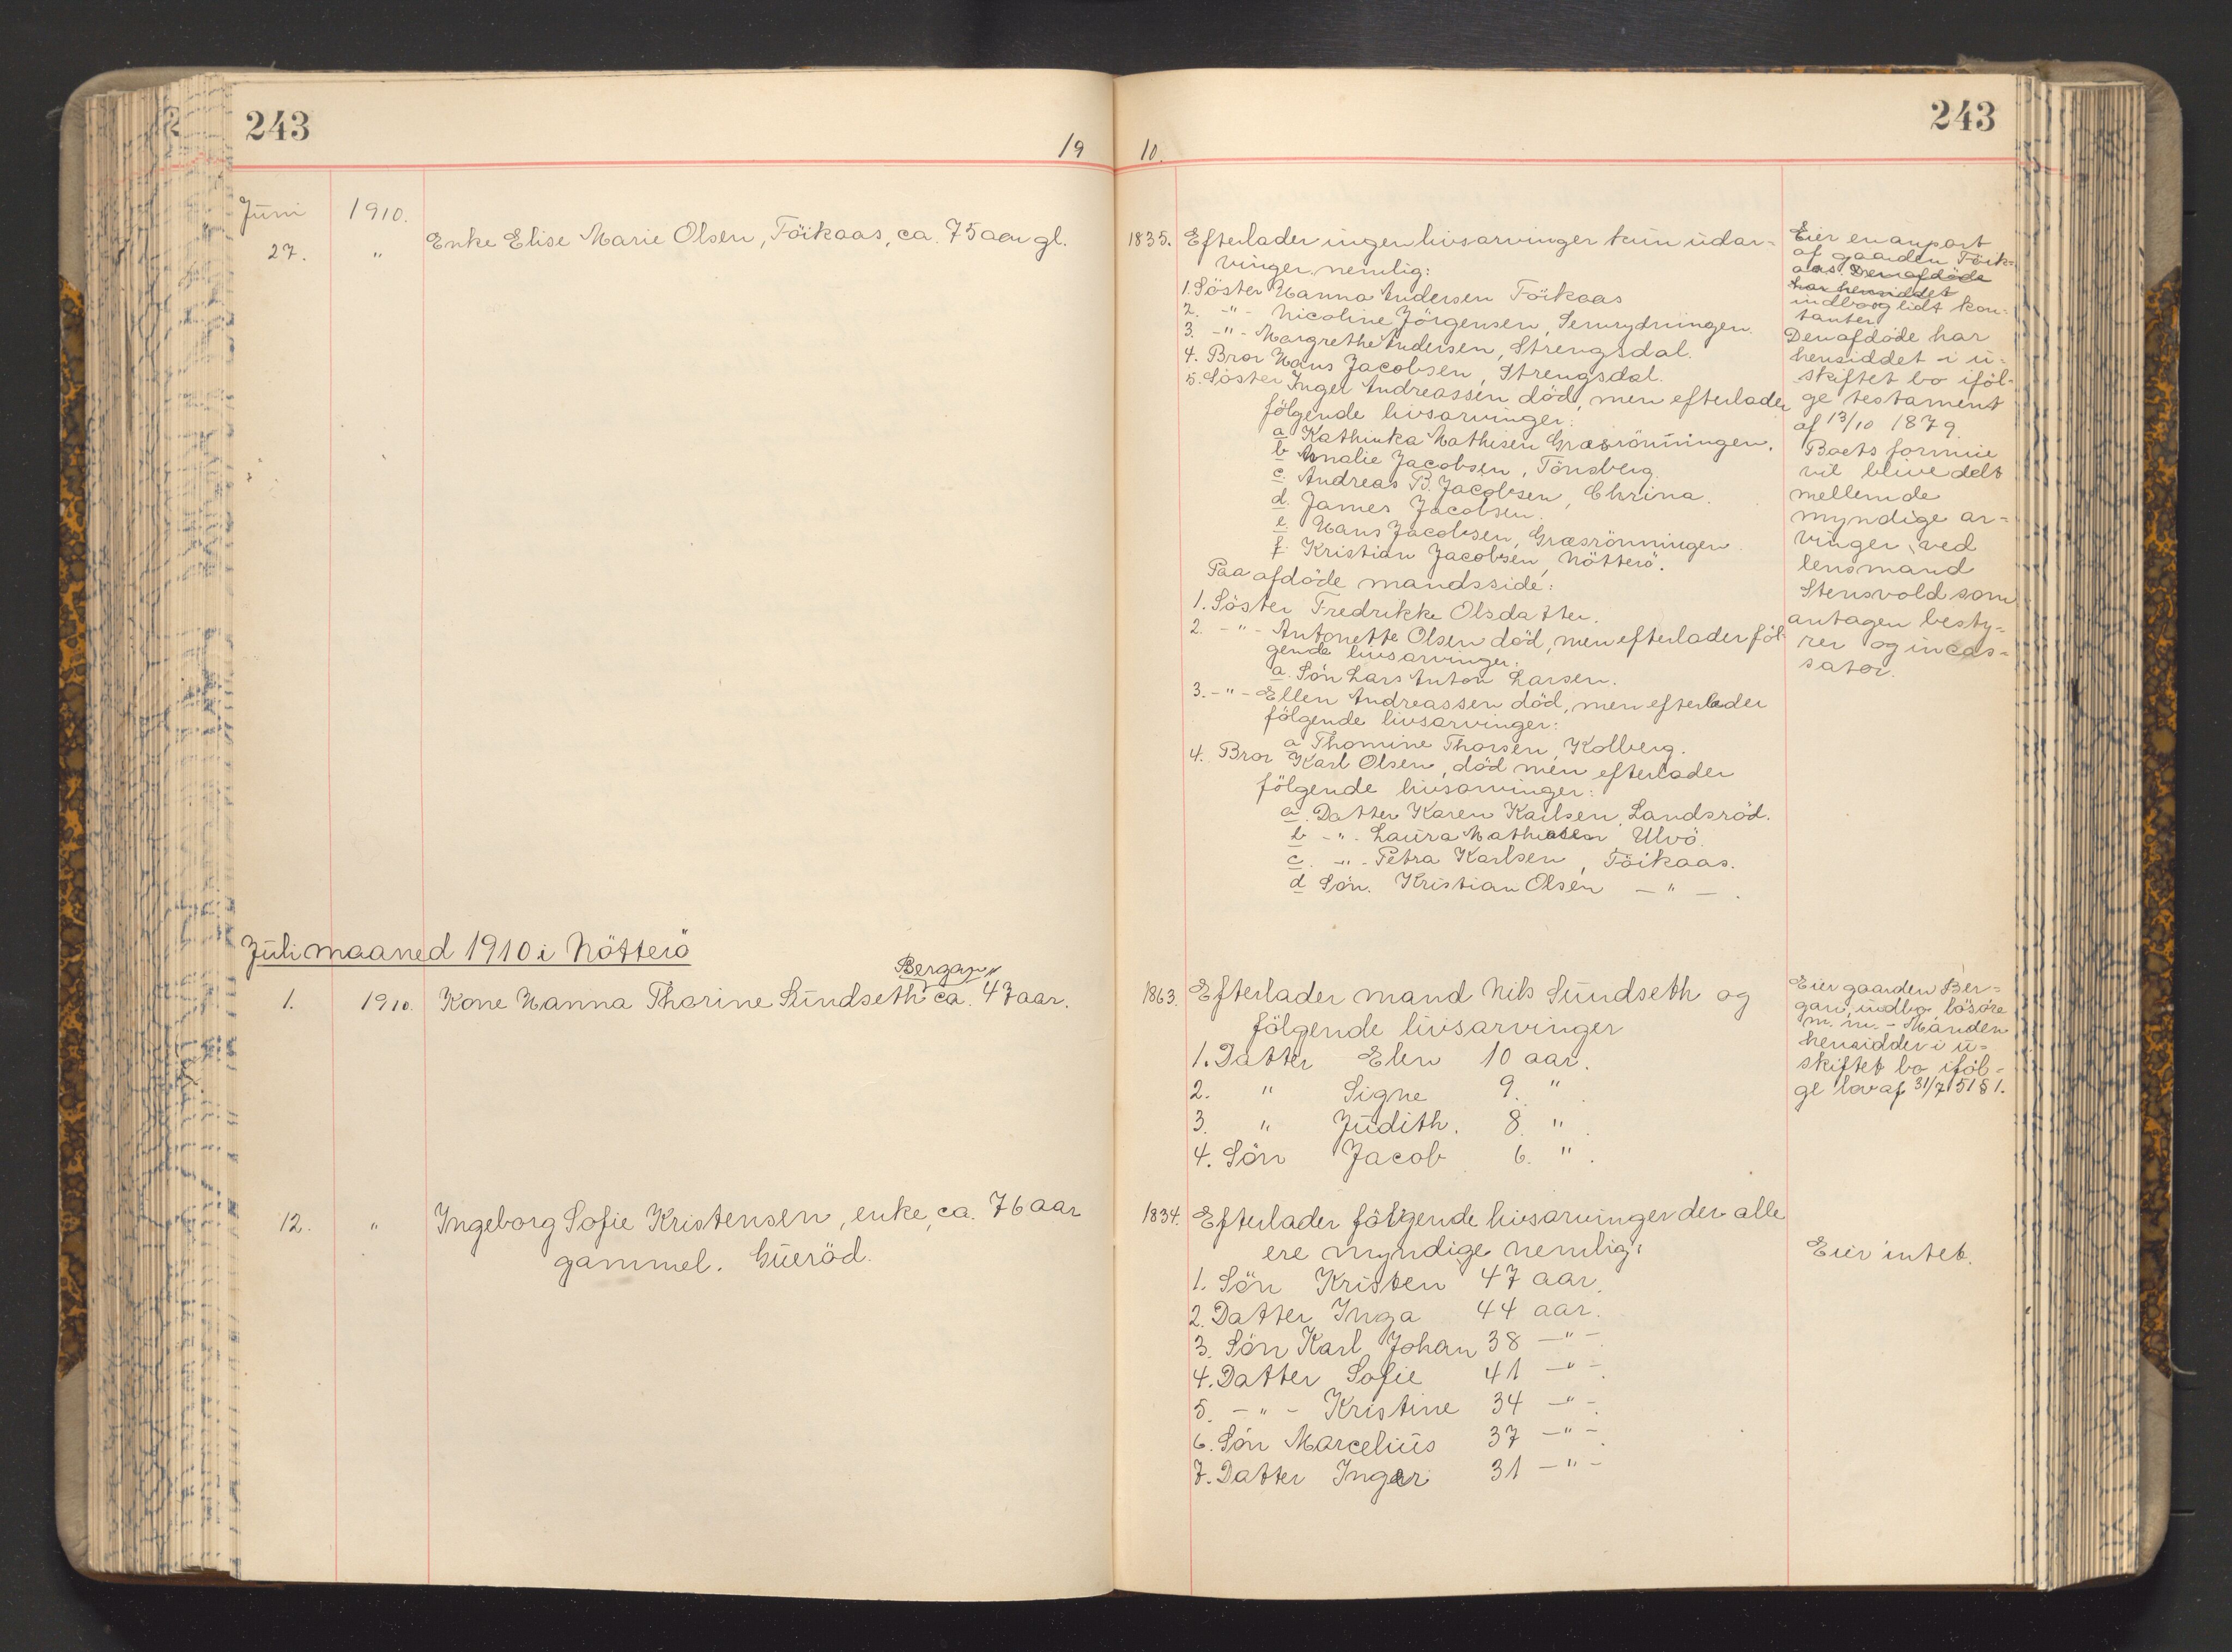 243
19
Juni 1910.
27. " Enke Elise Marie Olsen, Föikaas, ca. 75 aar gl.
Juli maaned 1910 i Nötterö
Bergan
1. 1910. Kone Hanna Thorine Sundseth ca. 47 aar.
12. " Ingeborg Sofie Kristensen, enke, ca. 76 aar
gammel. Gueröd.
243
10.
1835. Efterlader ingen livsarvinger kun udar-
vinger nemlig:
1. Söster Hanna Andersen Föikaas
2. -"- Nicoline Jörgensen,
3. -"- Margrethe Andersen, Strengsdal.
4. Bror Hans Jacobsen, Strengsdal.
5. Söster Inger Andreassen död, men efterlader
fölgende livsarvinger:
a Kathinka Mathisen Græsrönningen.
b Amalie Jacobsen, Tönsberg.
c. Andreas B. Jacobsen, Chrina.
d. James Jacobsen.
e. Hans Jacobsen, Græsrönningen.
f. Kristian Jacobsen, Nötterö.
Paa afdöde mandsside:
1. Söster Fredrikke Olsdatter.
2. -"- Antonette Olsen död, men efterlader föl-
gende livsarvinger:
a. Sön Lars Anton Larsen.
3. -"- Ellen Andreassen död, men efterlader
fölgende livsarvinger:
a Thomine Thorsen, Kolberg.
4. Bror Karl Olsen, död men efterlader
fölgende livsarvinger:
a. Datter Karen Karlsen, Landsröd.
b -"- Laura Mathiasen Ulvö.
c. -"- Petra Karlsen, Föikaas.
d Sön. Kristian Olsen -"-.
Eier en anpart
af gaarden Föik-
aas. Den afdöde
har hensiddet
indbo og lidt kon-
tanter.
Den afdöde har
hensiddet i u-
skiftet bo iföl-
ge testament
af 13/10 1879.
Boets formue
vil blive delt
mellem de
myndige ar-
vinger ved
lensmand
Stensvold som
antagen besty-
rer og incas-
sator.
1863. Efterlader mand Nils Sundseth og
fölgende livsarvinger
1. Datter Elen 10 aar.
2. " Signe 9. ".
3. " Judith. 8. ".
4. Sön Jacob 6. ".
Eier gaarden Ber-
gan, indbo, lösöre
m.m. - Manden
hensidder i u-
skiftet bo iföl-
ge lov af 31/7 51 § 1.
1834. Efterlader fölgende livsarvinger der alle
ere myndige nemlig:
1. Sön Kristen 47 aar.
2. Datter Inga 44 aar.
3. Sön Karl Johan 38 -"-.
4. Datter Sofie 41 -"-.
5. -"- Kristine 34 -"-.
6. Sön Marcelius 37 -"-.
7. Datter Inger 31 -"-
Eier intet.